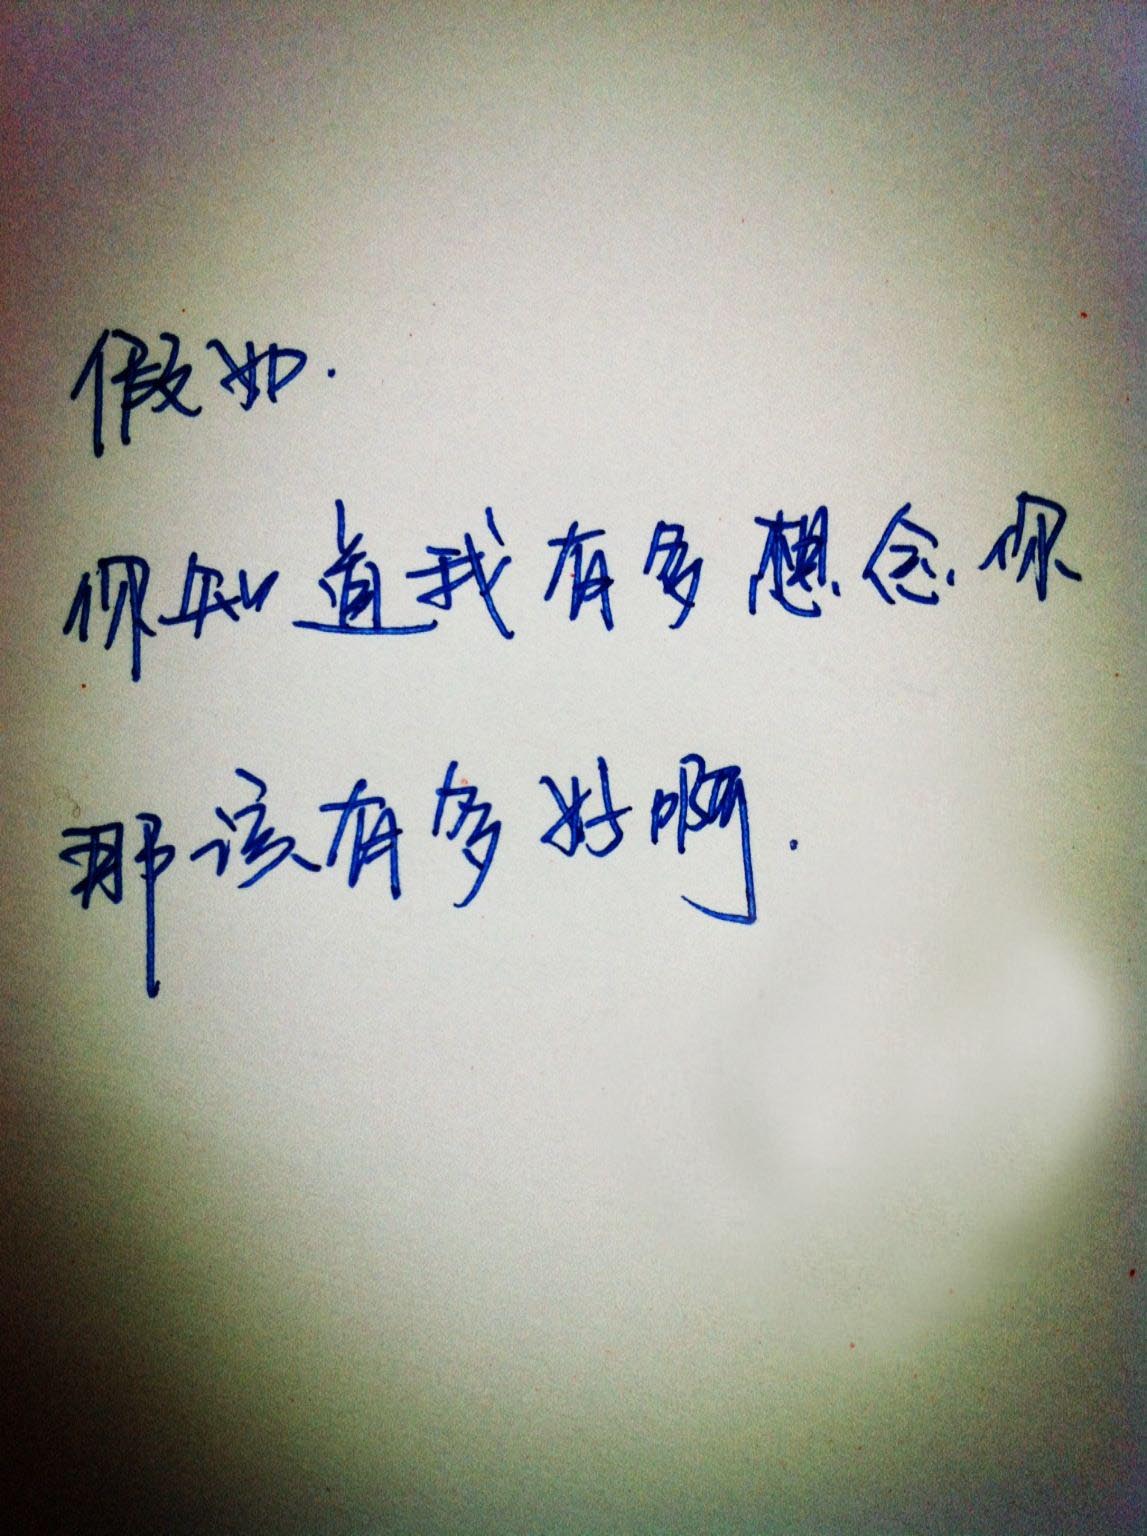 假如.
你知道我有多想念你
那该有多好啊.